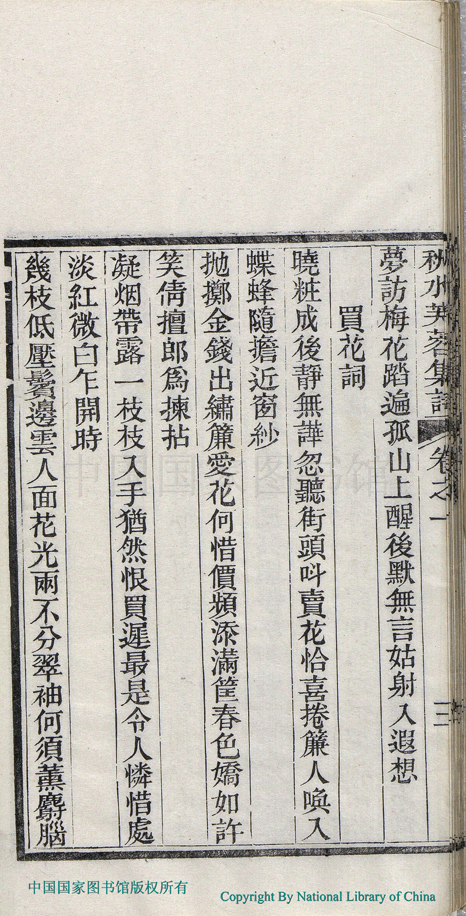 秋水芙蓉集詩 卷之一 三
夢訪梅花踏遍孤山上醒後默無言姑射入遐想
買花詞
曉粧成後靜無譁忽聽街頭叫賣花恰喜捲簾人喚入
蝶蜂隨擔近窗紗
拋擲金錢出繡簾愛花何惜價頻添滿筐春色嬌如許
笑倩擅郎為揀拈
凝烟帶露一枝枝入手猶然恨買遲最是令人憐惜處
淡紅微白乍開時
幾枝低壓鬢邊雲人面花光兩不分翠袖何須薰麝腦
中国国家图书馆
中国国家图书馆版权所有
Copyright By National Library of China